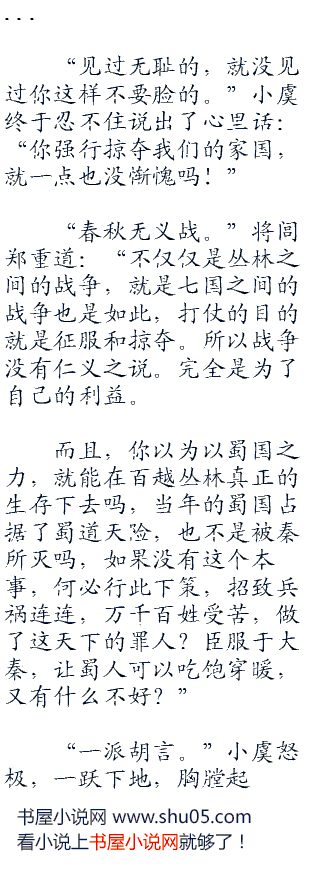 ...
“见过无耻的，就没见
过你这样不要脸的。”小虞
终于忍不住说出了心里话：
“你强行掠夺我们的家国，
就一点也没惭愧吗！”
“春秋无义战。”将闾
郑重道：“不仅仅是丛林之
间的战争，就是七国之间的
战争也是如此，打仗的目的
就是征服和掠夺。所以战争
没有仁义之说。完全是为了
自己的利益。
而且，你以为以蜀国之
力，就能在百越丛林真正的
生存下去吗，当年的蜀国占
据了蜀道天险，也不是被秦
所灭吗，如果没有这个本
事，何必行此下策，招致兵
祸连连，万千百姓受苦，做
了这天下的罪人？臣服于大
秦，让蜀人可以吃饱穿暖，
又有什么不好？”
“一派胡言。”小虞怒
极，一跃下地，胸膛起
书屋小说网 www.shu05.com
看小说上书屋小说网就够了！